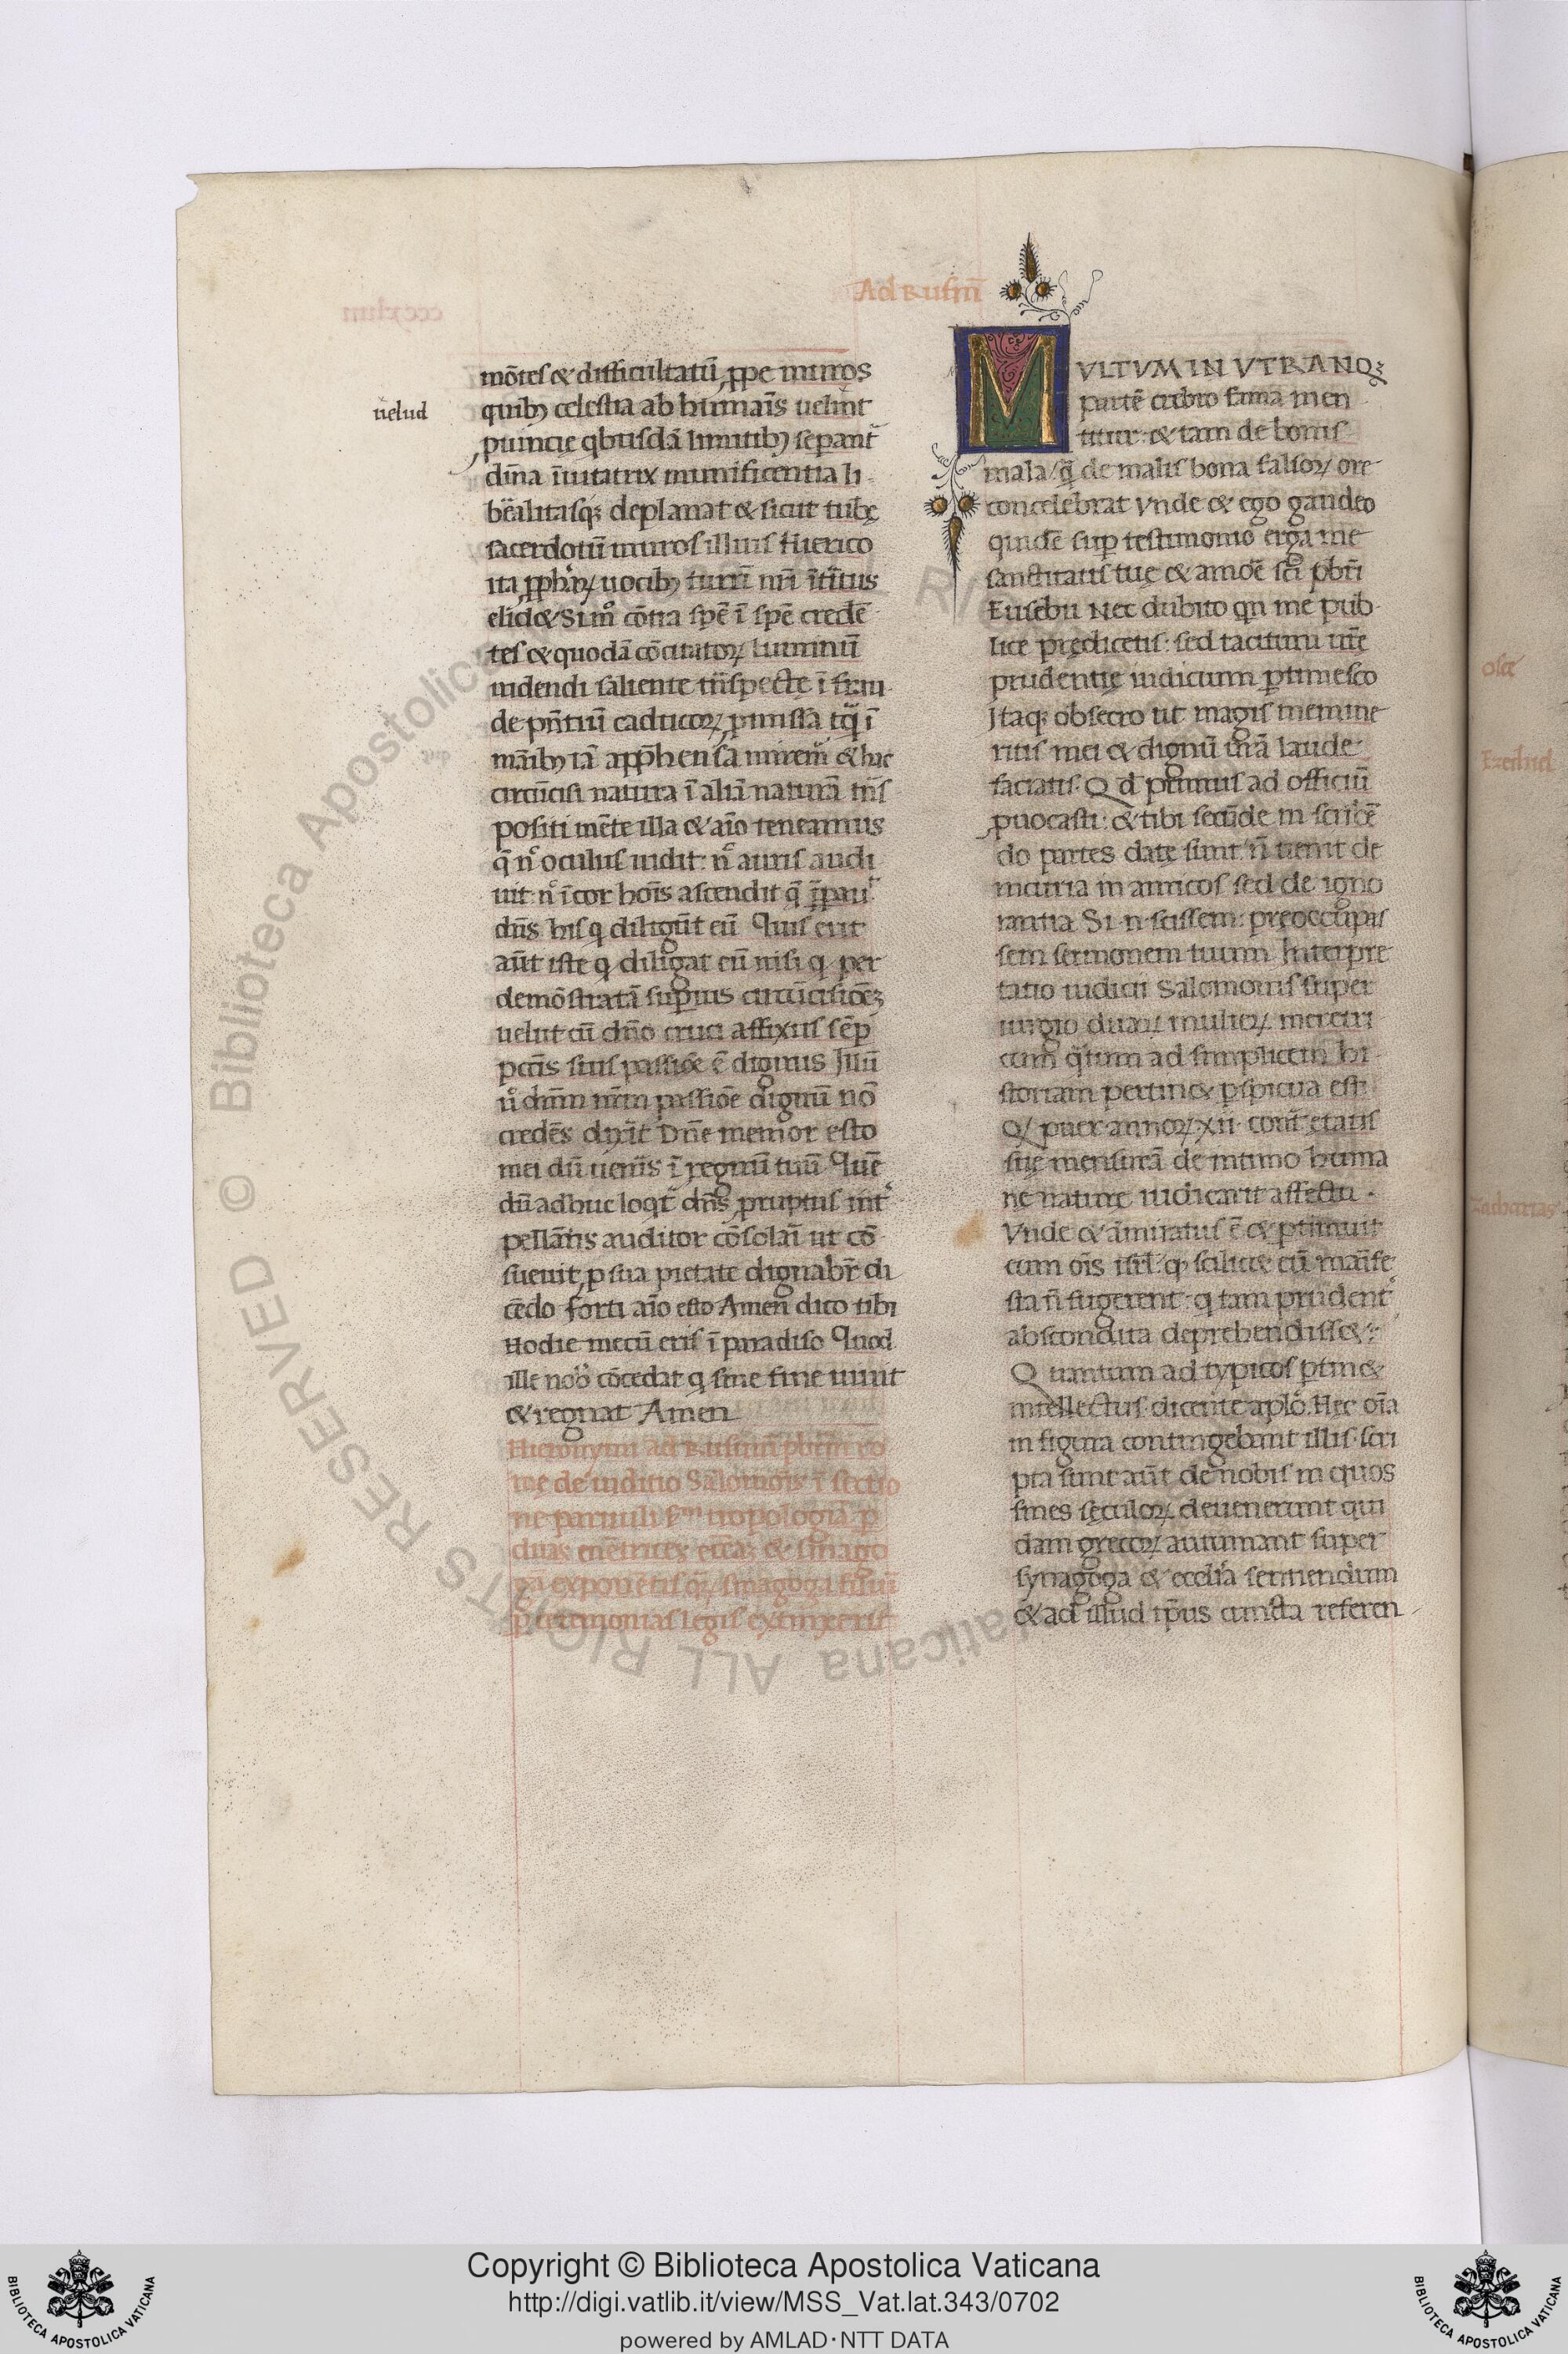 Ad Rufinū
uelud
mōtes & difficultatū, ꝓpe muros
quibꝫ celestia ab humaīs uelint
ꝓuincie qbusdā limitibꝫ sepant᷑
diīna īuitatrix munificentia li
bēalitasqꝫ deplanat & sicut tubę
sacerdotū muros illius Hierico
ita ꝓphaꝝ uocibꝫ turrī nrī ītītus
elid& Simͦ cōtra spē ī spē credē
tes & quodā cōcitatoꝝ luminū
uidendi saliente trīspecte ī frau
de pn̄tiū caducoꝝ ꝓmissa tꝙ̄ ī
mānibꝫ iā apphensa mirem᷑ & hac
circūcisi natura ī aliā naturā trīs
positi mēte illa & aīo teneamus
q̄ nͨ oculus uidit: nͨ auris audi
uit: nͨ ī cor hoīs ascendit q̄ p̄parͣ
dn̄s his q diligūt eū Quis erit
aūt iste q diligat eū nisi q per
demōstratā superius circūcisiōeꝫ
uelut cū dn̄o cruci affixus sēp
pccīs suis passiōe ē dignus Illū
uͦ dn̄m nr̄m passiōe dignū nō
credēs dixīt Dn̄e memor esto
mei dū uenīs ī regnū tuū Quē
dū adhuc loqt᷑ dn̄s ꝓruptus int᷑
pellātis auditor cōsolaī ut cō
sueuit, ꝓ sua pietate dignabr̄ di
cēdo forti aīo esto Amen dico tibi
Hodie mecū eris ī paradiso Quod
ille nobͦ cōcedat q sine fine uiuit
& regnat Amen
Hieronymi ad Rufinū pbrm̄ ro
me de iuditio Salomōis ī sectio
ne paruuli fͫ tropologiā p
duas meͣtrices ecc̄aꝫ & sinago
gā exponētis qꝝ sinagoga filiū
p cerimonias legis extinxerit
MVLTVM IN VTRANQꝫ
partē crebro fama men
titur: & tam de bonis
mala/ q̄ de malis bona falsoꝝ ore
concelebrat Vnde & ego gaudeo
quidē sup testimonio erga me
sanctitatis tuę & amōe scī pbrī
Eusebii Nec dubito qn me pub
lice prędicetis: sed tacitum ur̄ę
prudentię iudicium ptimesco
Itaqꝫ obsecro ut magis memine
ritis mei & dignū ur̄ā laude
faciatis. Qd primus ad officiū
ꝓuocasti: & tibi secūde in scribē
do partes datę sunt: n̄ uenit de
incuria in amicos sed de igno
rantia. Si .n. scissem: pręoccupas
sem sermonem tuum Interpre
tatio iudicii Salomonis super
iurgio duaꝝ mulieꝝ meretri
cum q̄tum ad simplicem hi
storiam pertin& pspicua est:
Qꝫ puer annoꝝ .xii. contͣ ętatis
suę mensurā de intimo huma
ne naturę iudicarit affectu .
Vnde & ammiratus ē & ptimuit
eum oīs isrl: ꝙ scilic& eū manīfe
sta n̄ fugerent: q tam prudent᷑
abscondita deprehendiss&:
Quantum ad typicos ptin&
intellectus: dicente aplo. Hęc oīa
in figura contingebant illis: scri
pta sunt aūt de nobis in quos
fines sęculoꝝ deuenerunt qui
dam grecoꝝ autumant super
synagoga & eccl̄ia sentiendum
& ad illud tp̄us cuncta referen
osee
Ezechiel
Zacharias
© Biblioteca Apostolica Vaticana ALL RIGHTS RESERVED
Copyright © Biblioteca Apostolica Vaticana
http://digi.vatlib.it/view/MSS_Vat.lat.343/0702
powered by AMLAD･NTT DATA
BIBLIOTECA APOSTOLICA VATICANA
BIBLIOTECA APOSTOLICA VATICANA